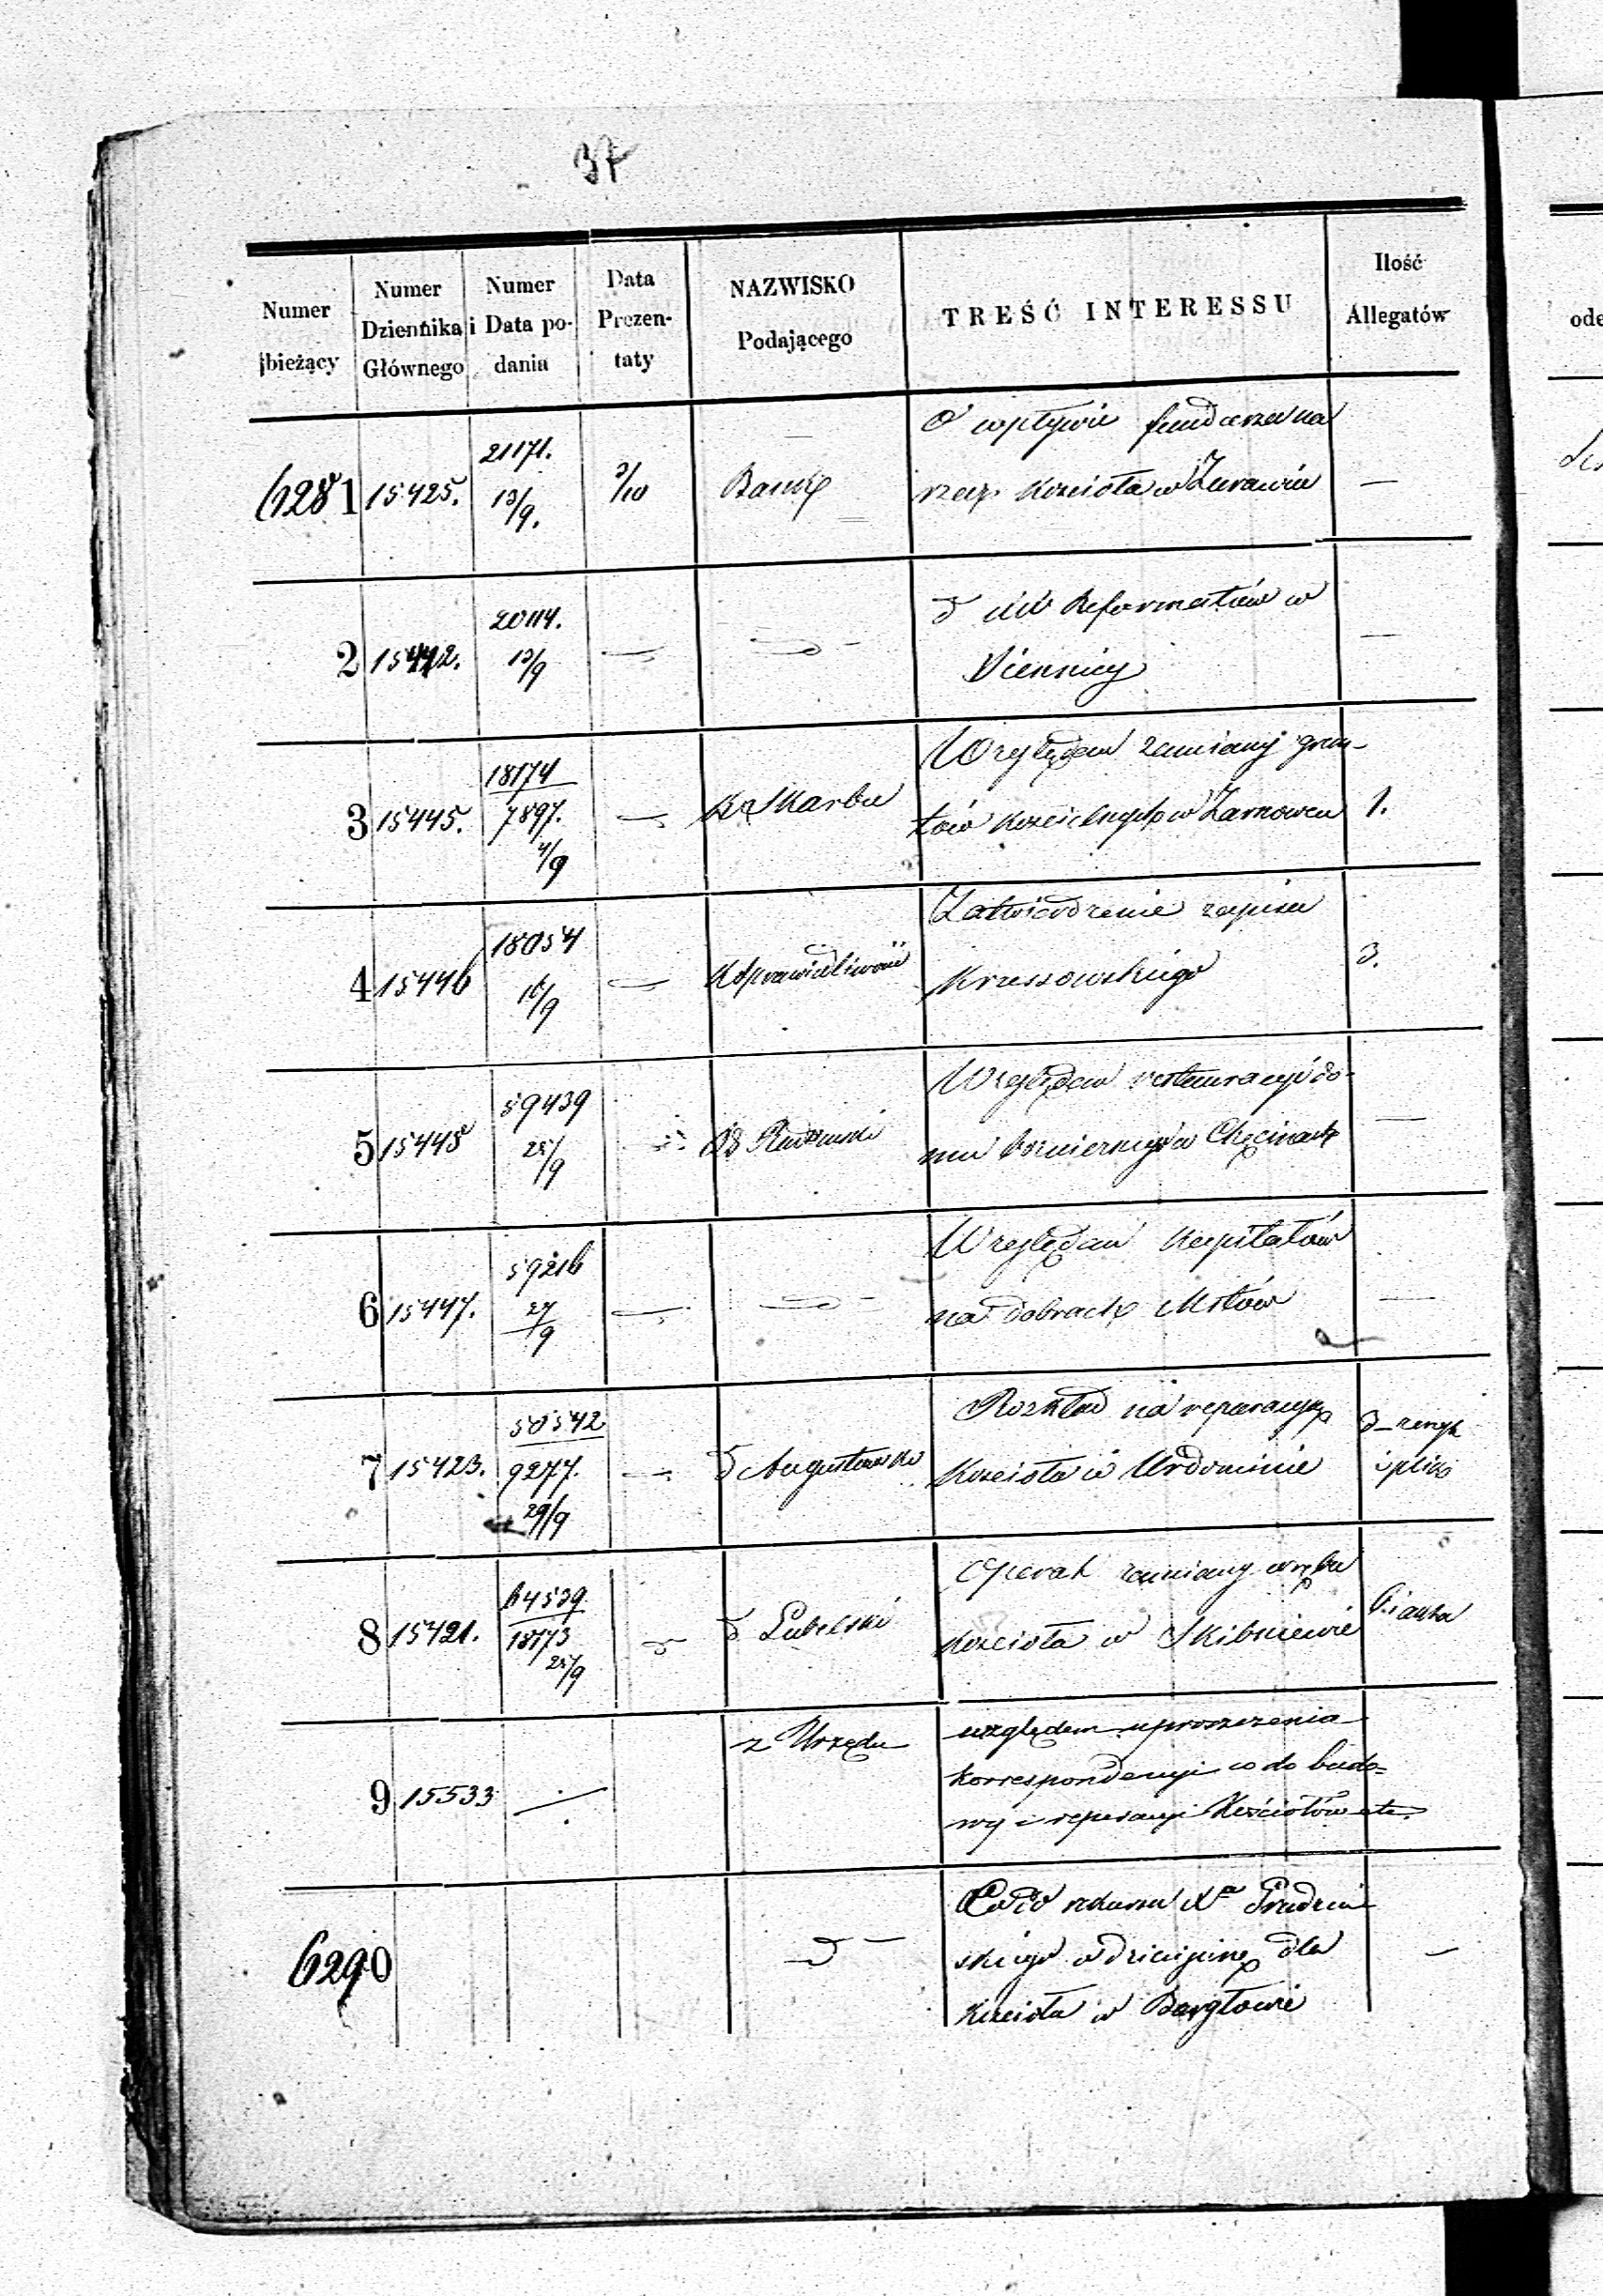 37
Numer bieżący
Numer Dziennika Głównego
Numer i Data podania
Data Prezentaty
NAZWISKO Podającego
TREŚĆ INTERESSU
Ilość Allegatów
6281 15425. 21171. 13/9. 3/10 Bank O wpływie fundusza na
rzecz Kościoła w Żurawin —
2 15442. 20114. 13/9 — d° — Reformatów w
Siennicy —
3 15445. 18174 7897. 4/9 — K. Skarbu Względem zamiany grun-
tów kościelnych w Żarnowcu 1.
4 15446 18054 16/9 — K Sprawiedliwości Zatwierdzenie zapisu
Kressowskiego 3.
5 15448 59439 25/9 Względem restauracyi do-
mu w Chęcinach —
6 15447. 59216 27/9 — d° — Względem Kapitałów
na dobrach Mstów —
7 15423. 50542 9277. 29/9 — Augustowski Rozkład na reparacyą
Kościoła w Urdominie
8 15421. 64539 18173 25/9 Lubelski Operat zamiany wrębu
Kościoła w Skibniewie
9 15533 z Urzędu względem uproszczenia
korrespondencyi co do budo-
wy i reperacyi Kościołów etc.
6290 d° — Co do
skiego dla
Kościoła w Bargłowie —